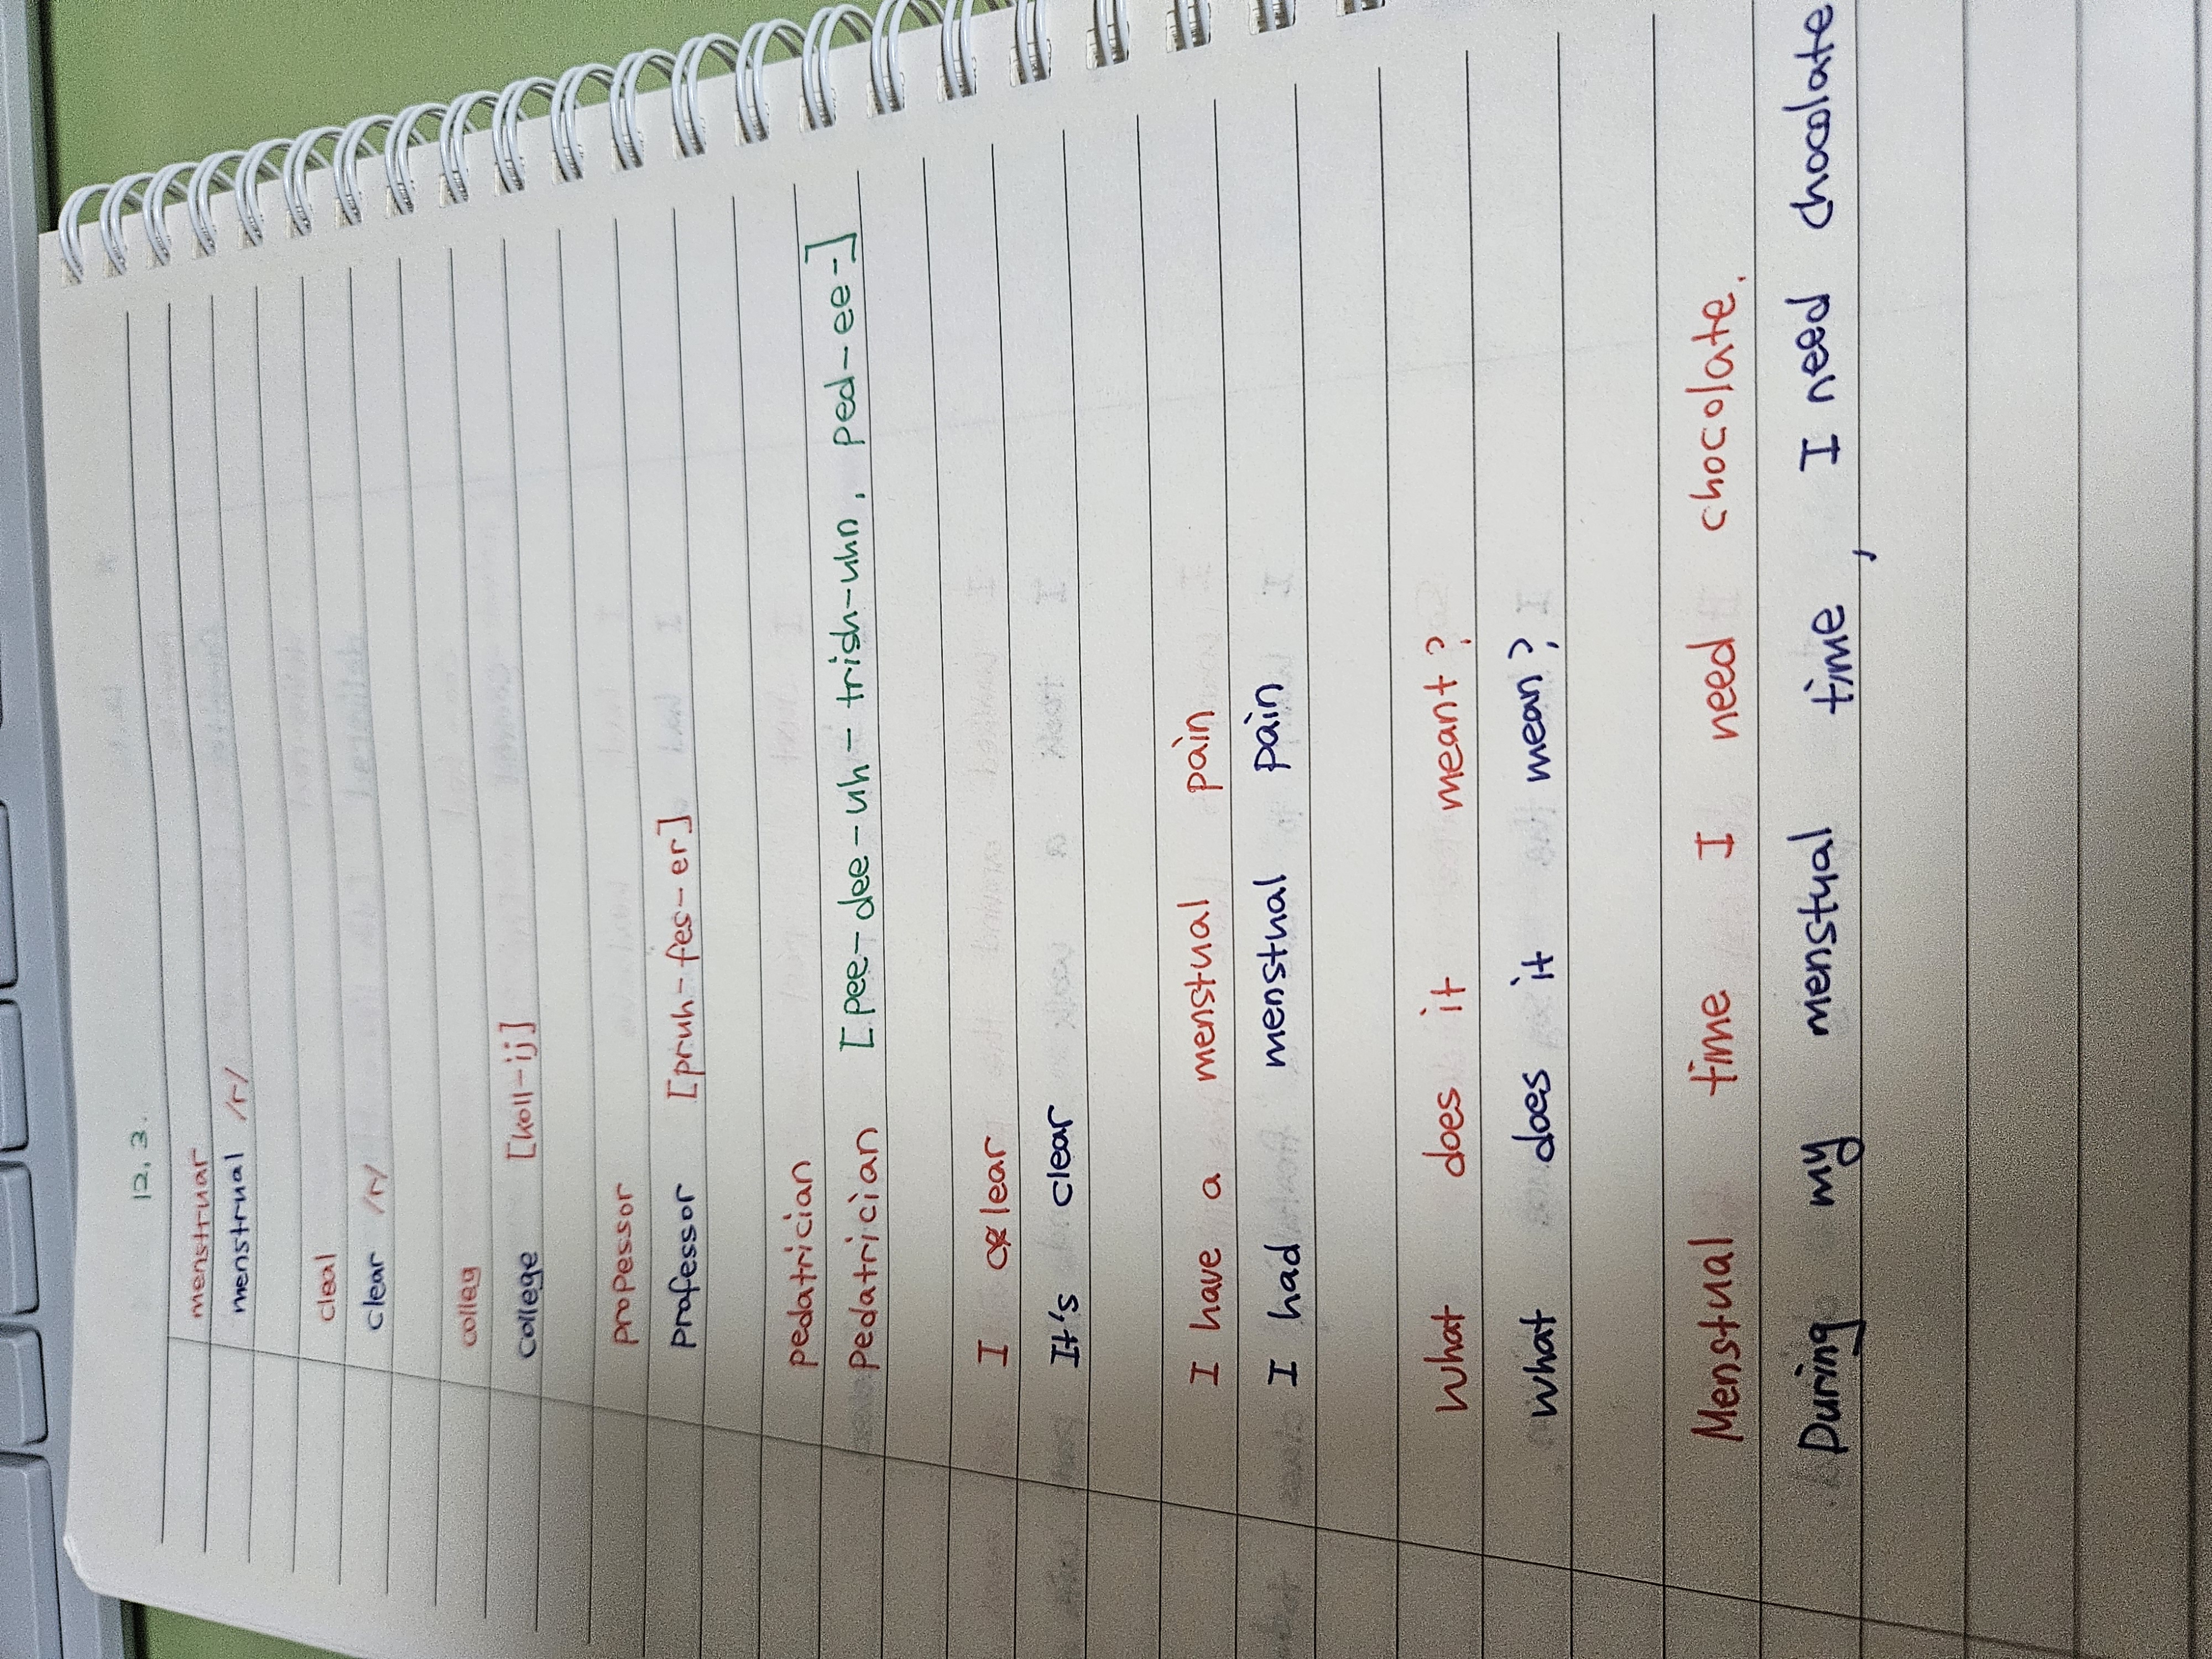 12.3.
menstruar
menstrual /r/
cleal
clear /r/
colleg
college [koll-ij]
propessor
professor [pruh-fes-er]
pedatrician
pedatrician [pee-dee-uh-trish-uhn, ped-ee-]
I clear
It's clear
I have a menstual pain
I had menstual pain
What does it meant?
What does it mean?
Menstual time I need chocolate.
During my menstual time, I need chocolate